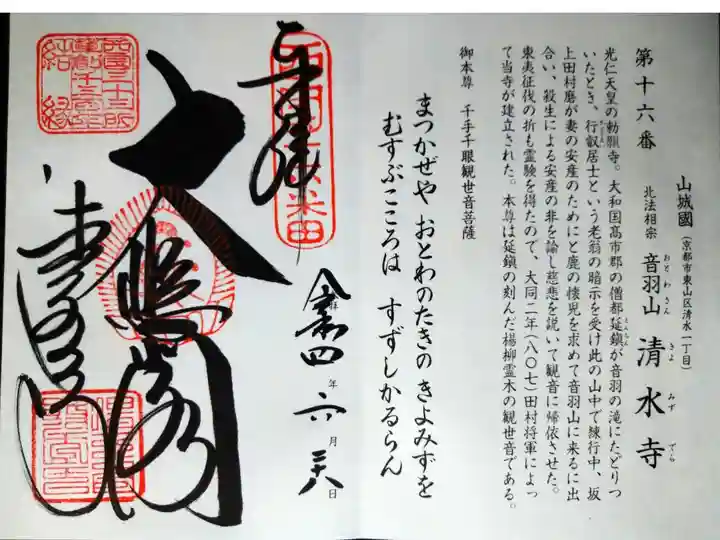 第十六番
山城國（京都市東山区清水一丁目）
北法相宗 音羽山 清水寺
おとわさん きよみずでら
光仁天皇の勅願寺。大和国高市郡の僧都延鎮が音羽の滝にたどりつ
えんちん
いたとき、行叡居士という老翁の暗示を受け此の山中で練行中、坂
上田村麿が妻の安産のためにと鹿の懐児を求めて音羽山に来るに出
合い、殺生による安産の非を諭し慈悲を説いて観音に帰依させた。
東夷征伐の折も霊験を得たので、大同二年（八〇七）田村将軍によっ
て当寺が建立された。本尊は延鎮の刻んだ楊柳霊木の観世音である。
御本尊 千手千眼観世音菩薩
まつかぜや おとわのたきの きよみずを
むすぶこころは すずしかるらん
奉拝
令和四年六月二八日
大悲閣
清水寺
結縁